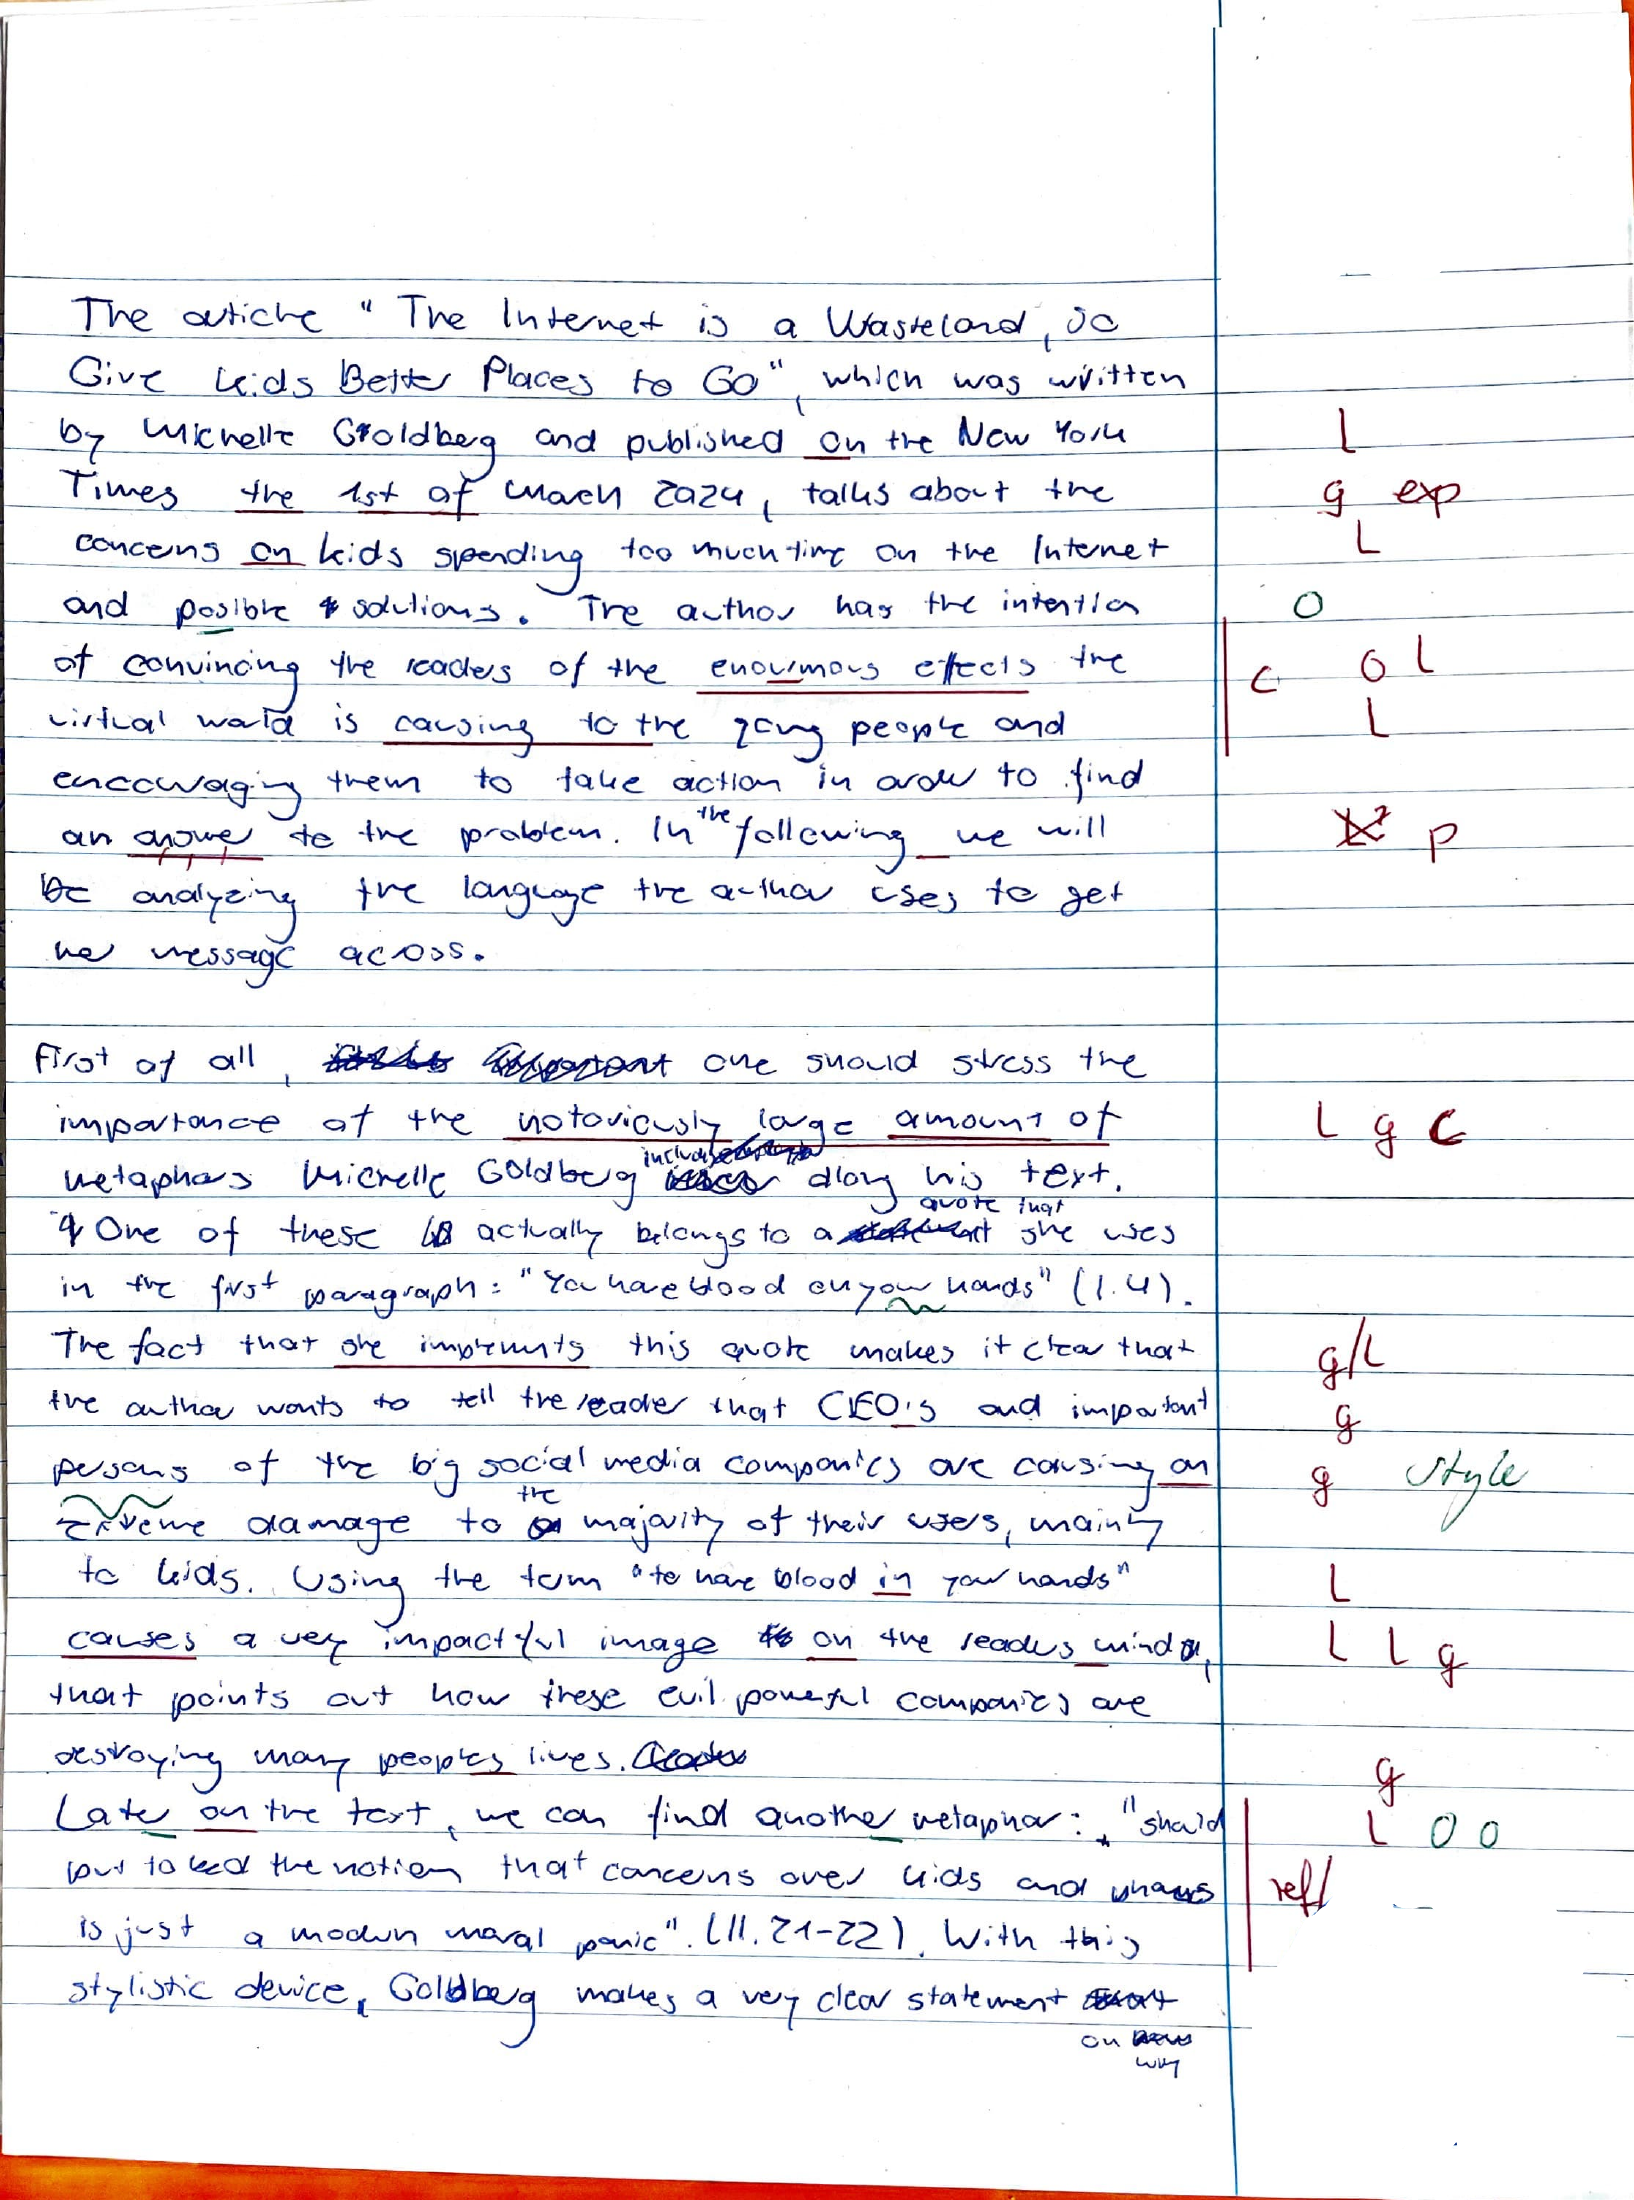 The article "The Internet is a Wasteland, so
Give Kids Better Places to Go", which was written
by Michelle Goldberg and published on the New York L
Times the 1st of March 2024, talks about the g exp
concerns on kids spending too much time on the Internet L
and posible solutions. The author has the intention O
of convincing the readers of the enourmous effects the c O L
virtual world is causing to the yong people and L
encouraging them to take action in order to find
an answer to the problem. In the following we will p
be analyzing the language the author uses to get
her message across.
First of all, one should stress the
importance of the notoriously large amount of L g c
metaphors Michelle Goldberg includes along his text.
One of these actually belongs to a quote that she uses
in the first paragraph: "You have blood on your hands" (l.4).
The fact that she implements this quote makes it clear that g/L
the author wants to tell the reader that CEO's and important g
persons of the big social media companies are causing an g style
extreme damage to the majority of their users, mainly
to kids. Using the term "to have blood in your hands" L
causes a very impactful image on the readers mind, L L g
that points out how these evil powerful companies are
destroying many peoples lives. g
Later on the text, we can find another metaphor: "should L O O
put to bed the notion that concerns over kids and phones ref/
is just a modern moral panic". (ll. 21-22). With this
stylistic device, Goldberg makes a very clear statement
on why